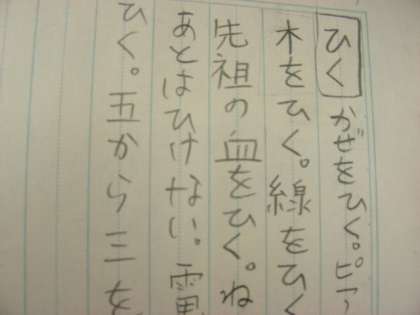 ひく かぜをひく。ピア
木をひく。線をひく
先祖の血をひく。ね
あとはひけない。電
ひく。五から三を